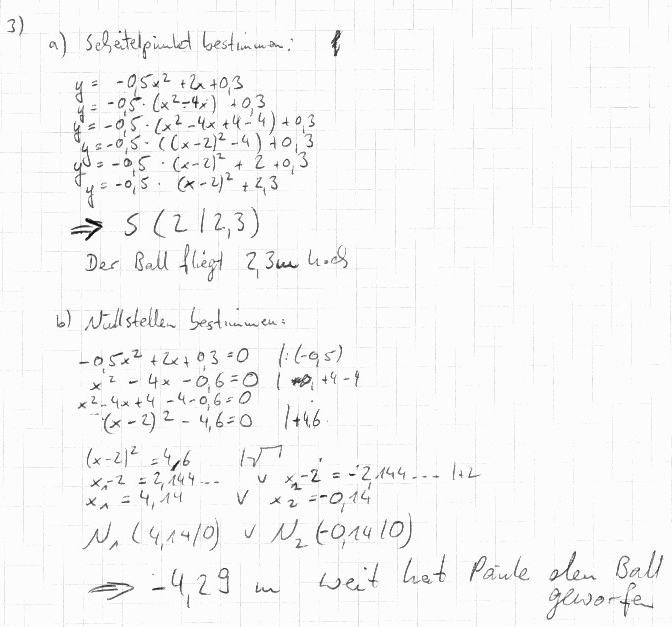 3)
a) Scheitelpunkt bestimmen:
y = -0,5x² + 2x + 0,3
y = -0,5 · (x² - 4x) + 0,3
y = -0,5 · (x² - 4x + 4 - 4) + 0,3
y = -0,5 · ((x-2)² - 4) + 0,3
y = -0,5 · (x-2)² + 2 + 0,3
y = -0,5 · (x-2)² + 2,3
⇒ S (2 | 2,3)
Der Ball fliegt 2,3m hoch
b) Nullstellen bestimmen:
-0,5x² + 2x + 0,3 = 0 | : (-0,5)
x² - 4x - 0,6 = 0 | +4 - 4
x² - 4x + 4 - 4 - 0,6 = 0
(x - 2)² - 4,6 = 0 | +4,6
(x-2)² = 4,6 | √
x₁ - 2 = 2,144... ∨ x₂ - 2 = -2,144... | +2
x₁ = 4,14 ∨ x₂ = -0,14
N₁ (4,14/0) ∨ N₂ (-0,14/0)
⇒ -4,29 m weit hat Paule den Ball
geworfen